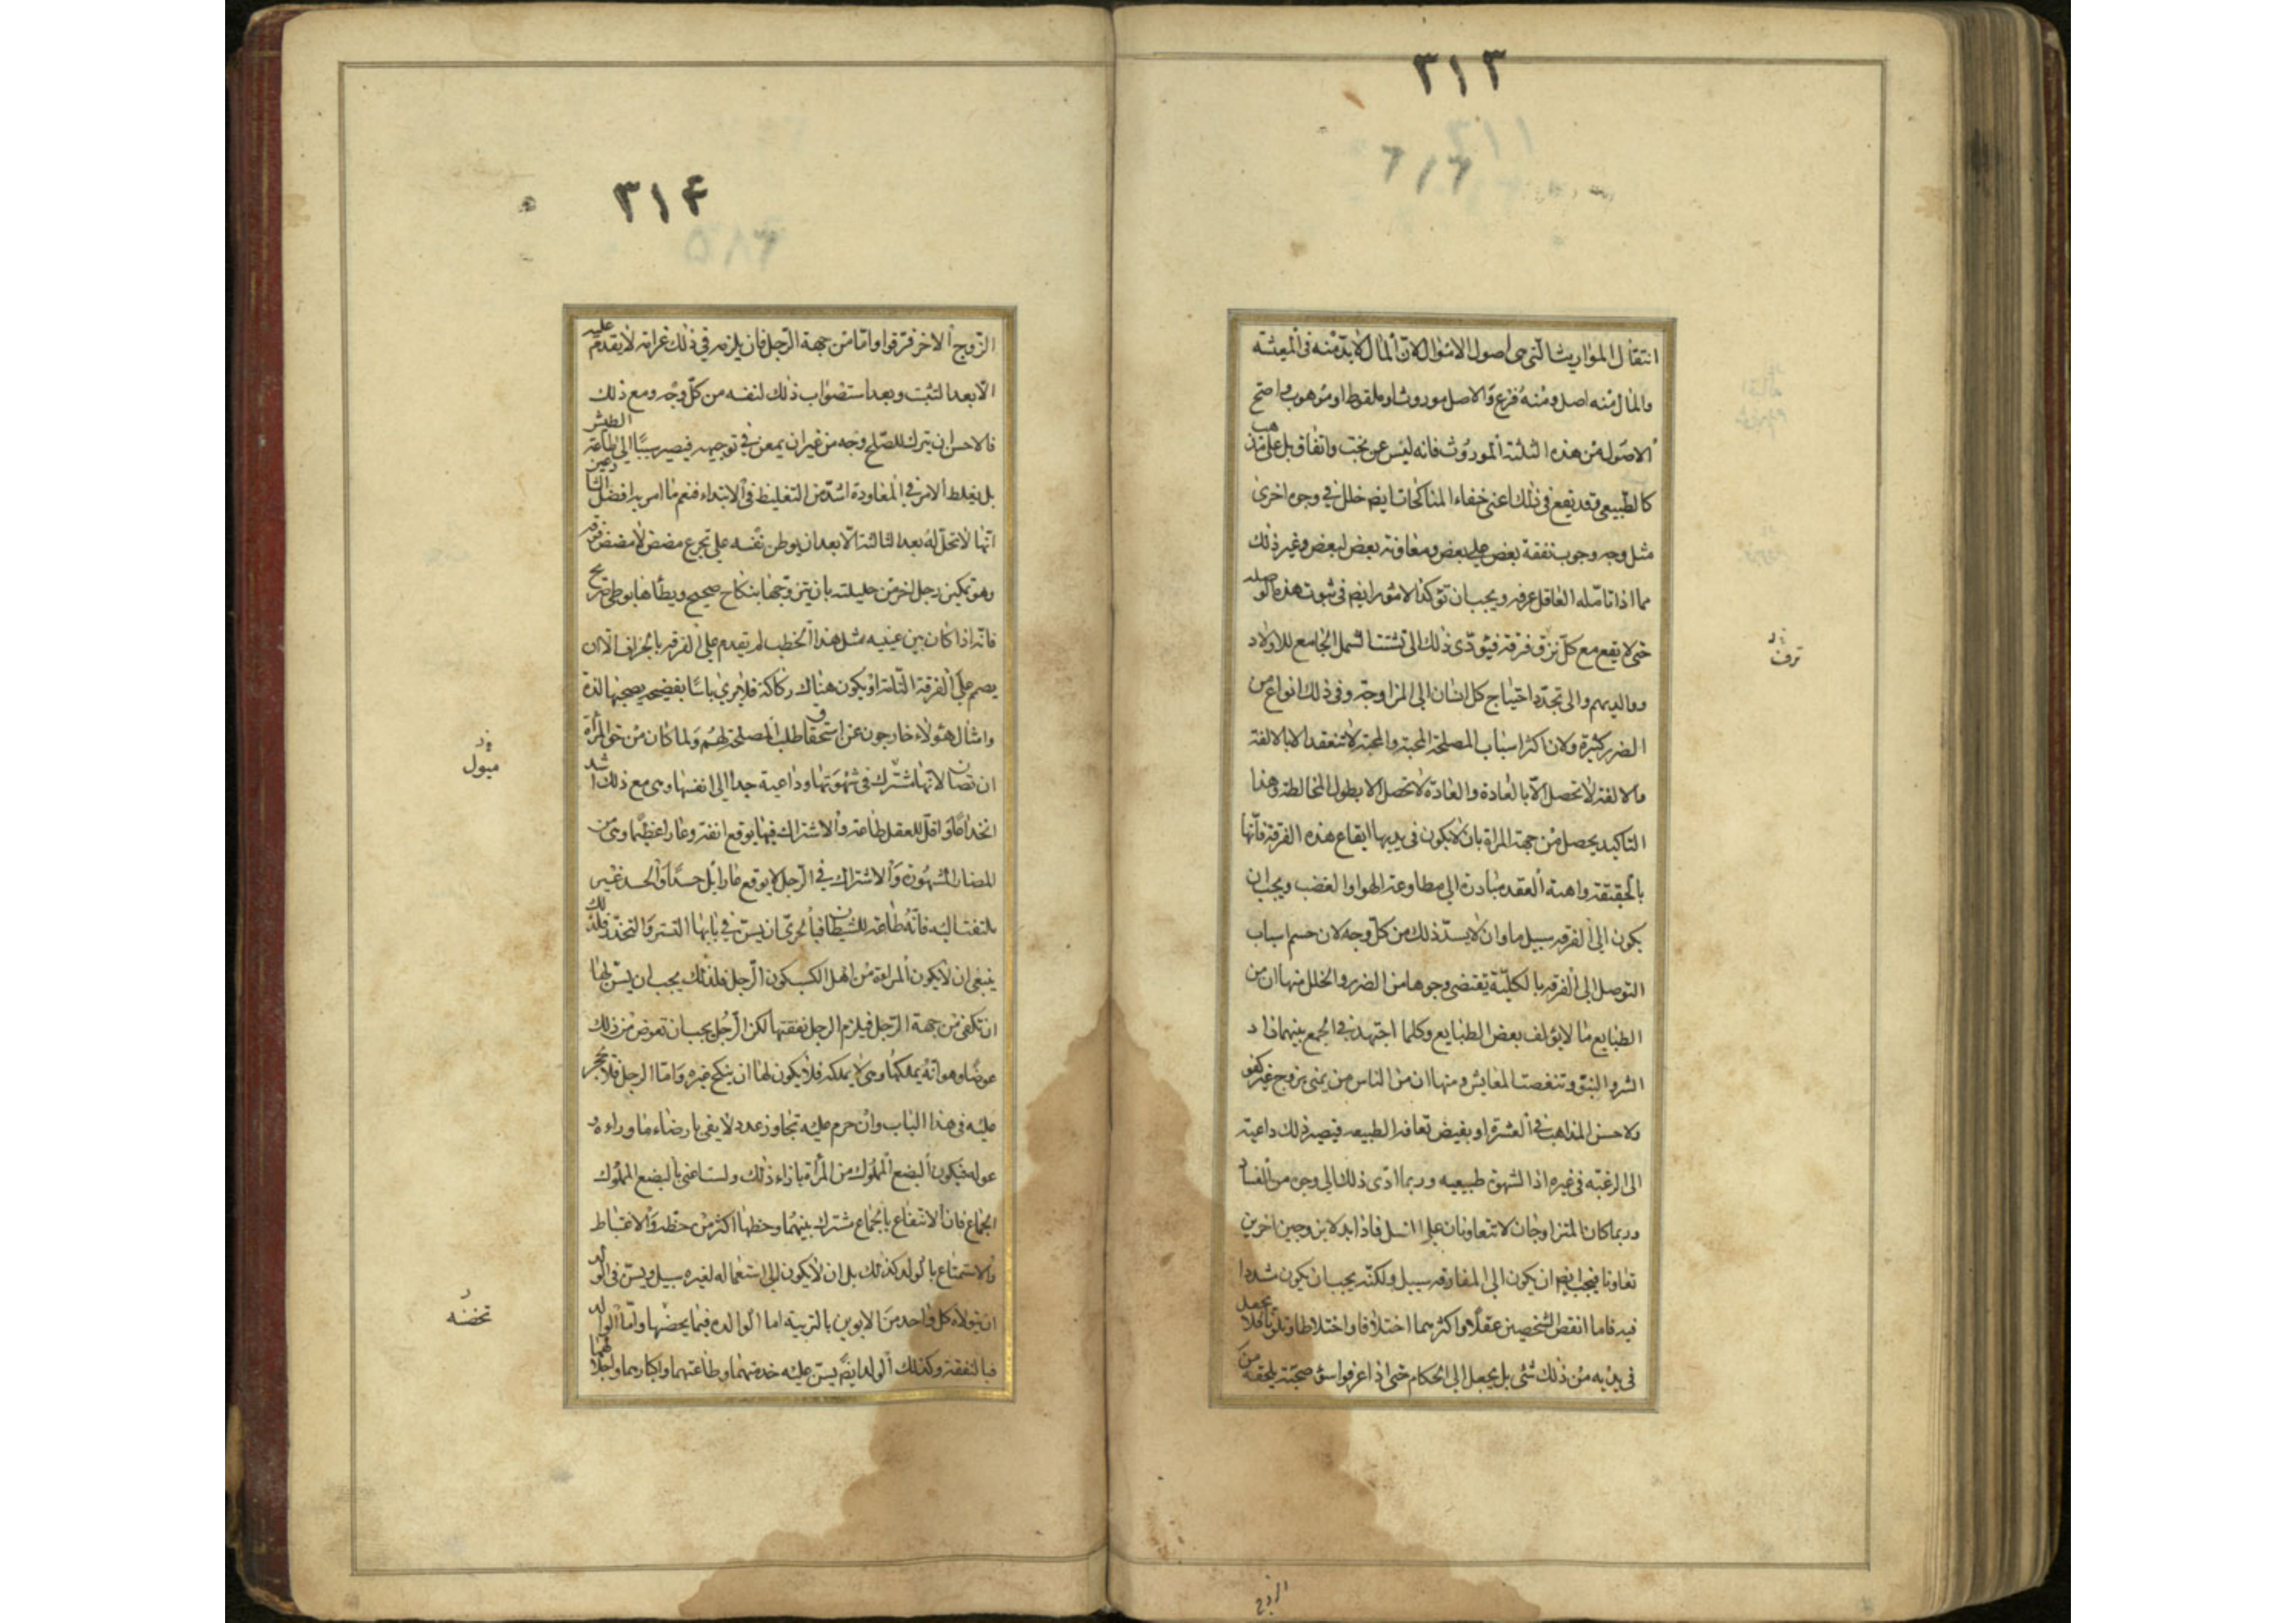 ٣١٣
انتقال المواريث التي هي اصول الاموال لان المال لابد منه في المعيشة
والمال منه اصل ومنه فرع والاصل موروث او ملقوط او موهوب واصح
الاصول من هذه الثلثة الموروث فانه ليس عن بخت واتفاق بل على مذهب
كالطبيعي وقد يقع في ذلك اعني خفاء المناكحات ايضا خلل في وجوه اخرى
مثل وجوب نفقة بعض على بعض ومعاونة بعض لبعض وغير ذلك
مما اذا تامله العاقل عرفه ويجب ان توكد الامور ايضا في ثبوت هذه الوصلة
حتى لا يقع مع كل نزق فرقة فيؤدي ذلك الى تشتت الشمل الجامع للاولاد
ووالديهم والى تجدد احتياج كل انسان الى المزاوجة وفي ذلك انواع من
الضرر كثيرة ولان اكثر اسباب المصلحة المحبة والمحبة لا تنعقد الا بالالفة
والالفة لا تحصل الا بالعادة والعادة لا تحصل الا بطول المخالطة وهذا
التاكيد يحصل من جهة المراة بان لا يكون في يديها ايقاع هذه الفرقة فانها
بالحقيقة واهية العقد مبادرة الى مطاوعة الهوا والغضب ويجب ان
يكون الى الفرقة سبيل ما وان لا يسد ذلك من كل وجه لان حسم اسباب
التوصل الى الفرقة بالكلية يقتضي وجوها من الضرر والخلل منها ان من
الطبايع ما لا يؤلف بعض الطبايع وكلما اجتهد في الجمع بينهما زاد
الشر والنبو وتنغصت المعايش ومنها ان من الناس من يمنى بزوج غير كفو
ولا حسن المذاهب في العشرة او بغيض تعافه الطبيعة فيصير ذلك داعية
الى الرغبة في غيره اذ الشهوة طبيعية وربما ادى ذلك الى وجوه من الفساد
وربما كان المتزاوجان لا يتعاونان على النسل فاذا ابدلا بزوجين اخرين
تعاونا فيجب ايضا ان يكون الى المفارقة سبيل ولكنه يجب ان يكون مشددا
فيه فاما انقص الشخصين عقلا واكثرهما اختلافا واختلاطا وتلونا فلا يجعل
في يديه من ذلك شئ بل يجعل الى الحكام حتى اذا عرفوا سوء صحبة يلحقه من
نزق
الزوج
٣١۴
الزوج الاخر فرقوا واما من جهة الرجل فان يلزمه في ذلك غرامة لا يقدم عليه
الا بعد التثبت وبعد استصواب ذلك لنفسه من كل وجه ومع ذلك
فالاحسن ان يترك للصلح وجه من غير ان يمعن في توجيهه فيصير سببا الى طاعة الطيش
بل يغلظ الامر في المعاودة اشد من التغليظ في الابتداء فنعم ما امر به افضل الشارعين
انها لا تحل له بعد الثالثة الا بعد ان يوطن نفسه على تجرع مضض لا مضض فوقه
وهو تمكين رجل اخر من حليلته بان يتزوجها بنكاح صحيح ويطأها بوطي صريح
فانه اذا كان بين عينيه مثل هذا الخطب لم يقدم على الفرقة بالجزاف الا ان
يصمم على الفرقة التامة او يكون هناك ركاكة فلا يرى باسا بفضيحة يصحبها لذة
وامثال هؤلاء خارجون عن استحقاق طلب المصلحة لهم ولما كان من حق المرأة
ان تصان لانها مشترك في شهوتها وداعية جدا الى نفسها وهي مع ذلك اشد
انخداعا واقل للعقل طاعة والاشتراك فيها يوقع انفة وعارا عظيما وهي من
المضار المشهورة والاشتراك في الرجل لا يوقع عارا بل حسدا والحسد غير
ملتفت اليه فانه طاعة للشيطان فبالحرى ان يسن في بابها التستر والتخدر فلذلك
ينبغي ان لا يكون المراة من اهل الكسب كون الرجل فلذلك يجب ان يسن لها
ان تكفى من جهة الرجل فيلزم الرجل نفقتها لكن الرجل يجب ان تعوض من ذلك
عوضا وهو انه يملكها وهي لا يملكه فلا يكون لها ان ينكح غيره واما الرجل فلا يحجر
عليه في هذا الباب وان حرم عليه تجاوز عدد لا يفي بارضاء ما وراءه و
عوله فيكون البضع المملوك من المرأة بازاء ذلك ولست اعني بالبضع المملوك
الجماع فان الانتفاع بالجماع مشترك بينهما وحظها اكثر من حظه والاغتباط
والاستمتاع بالولد كذلك بل ان لا يكون الى استعماله لغيره سبيل ويسن في الولد
ان يتولاه كل واحد من الابوين بالتربية اما الوالدة فيما يخصها واما الوالد
فبالنفقة وكذلك الولد ايضا يسن عليه خدمتهما وطاعتهما واكبارهما واجلالهما
مبول
تحضنه